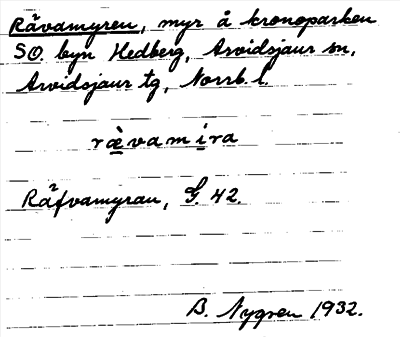 Rävamyren, myr å kronoparken
SO. byn Hedberg, Arvidsjaur sn,
Arvidsjaur tg, Norrb. l.
rä̀vamira
Räfvamyran, G. 42.
B. Nygren 1932.